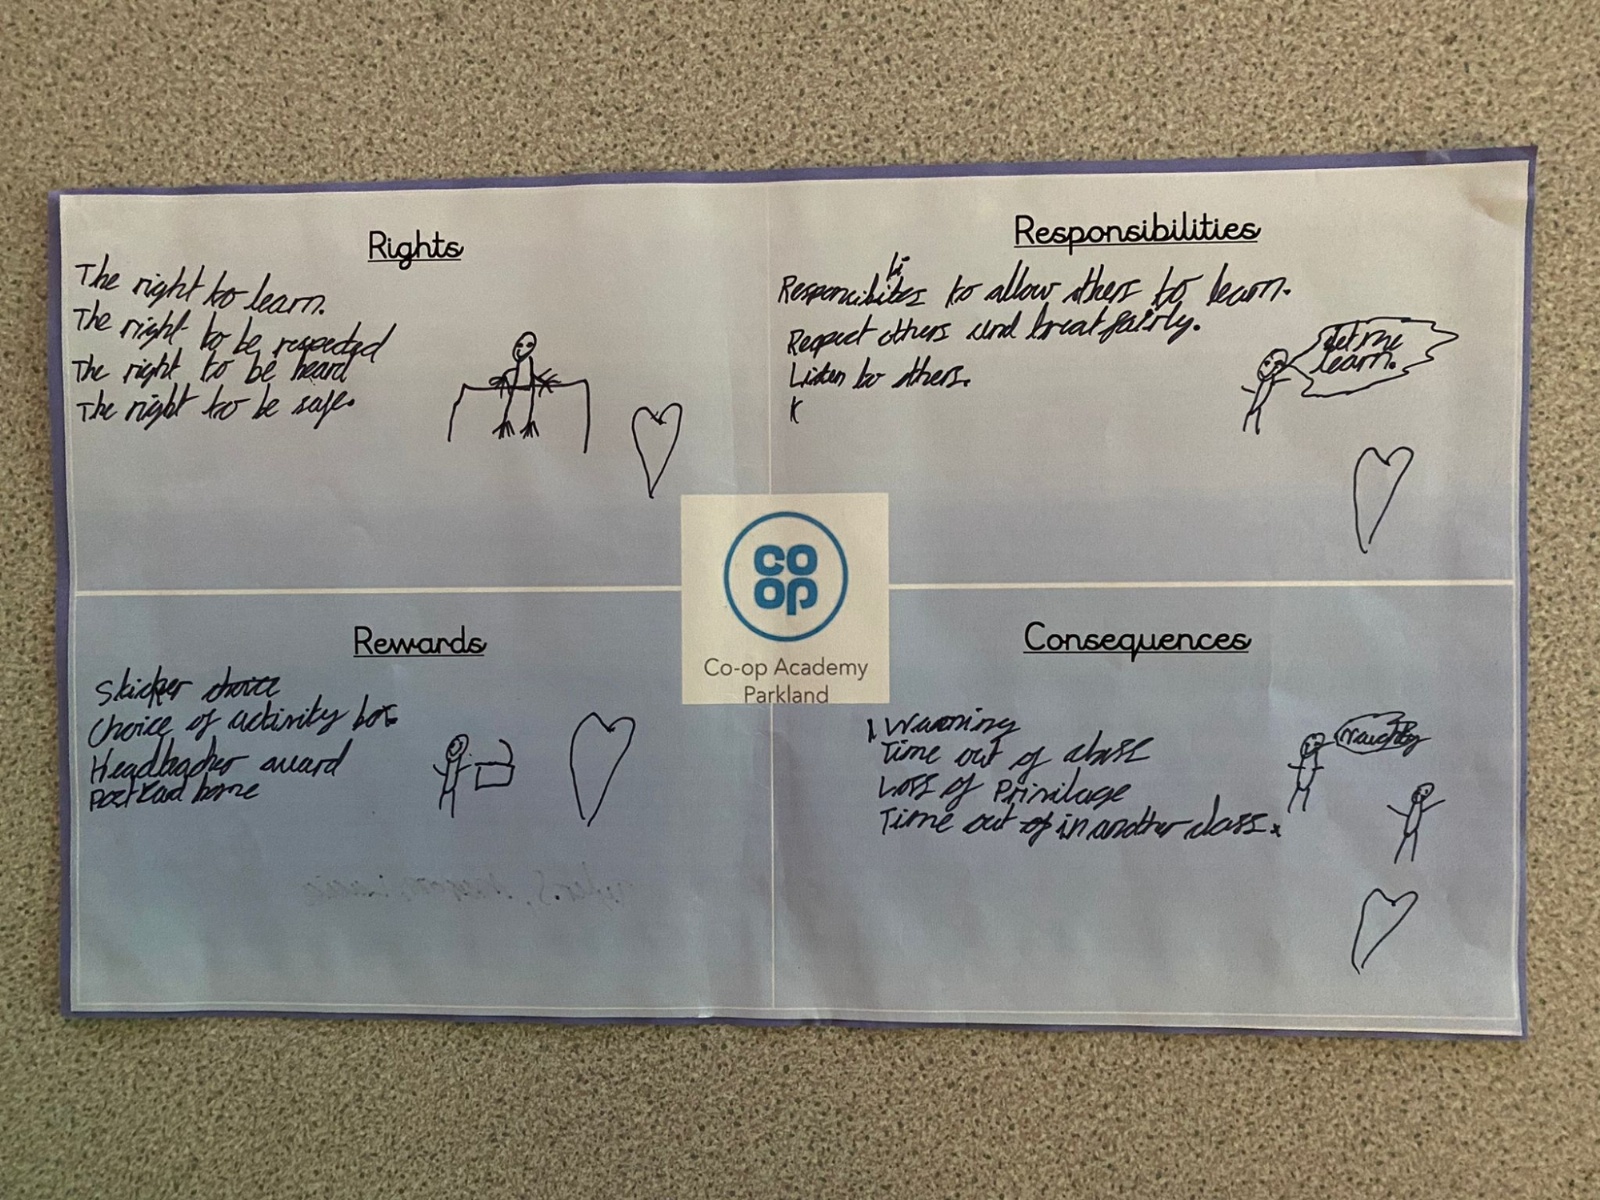 Rights
The right to learn.
The right to be respected
The right to be heard
The right to be safe.
Responsibilities
to allow others to learn.
Respect others and treat fairly.
Listen to others.
Let me
learn.
CO
OP
Co-op Academy
Parkland
Rewards
Sticker choice
Choice of activity box
award
home
Consequences
1 Warning
Time out of class
Loss of Privilage
Time out of in another class.
naughty